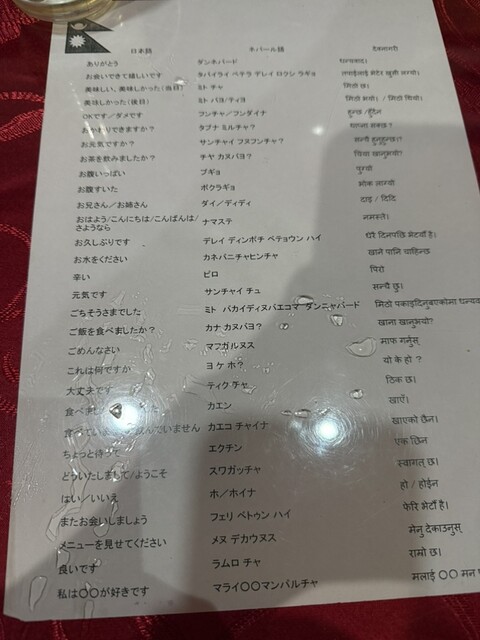 日本語 ネパール語 देवनागरी
ありがとう ダンネバード धन्यवाद।
お会いできて嬉しいです タパイライ ベテラ デレイ ロラシ ラギョ तपाईलाई भेटेर खुसी लाग्यो।
美味しい、美味しかった(当日) ミト チャ मिठो छ।
美味しかった(後日) ミト バヨ/ティヨ मिठो भयो। / मिठो थियो।
OKです/ダメです フンチャ/フンダイナ हुन्छ /हुँदैन
おかわりできますか? タプナ ミルチャ? थाप्ना सक्छ?
お元気ですか? サンチャイ フヌフンチャ? सन्चै हुनुहुन्छ।?
お茶を飲みましたか? チヤ カヌバヨ? चिया खानुभयो?
お腹いっぱい プギョ पुग्यो
お腹すいた ボクラギョ भोक लाग्यो
お兄さん/お姉さん ダイ/ディディ दाइ / दिदि
おはよう/こんにちは/こんばんは/
さようなら ナマステ नमस्ते।
お久しぶりです デレイ ディンポチ ベテョウン ハイ धेरै दिनपछि भेटयौं है।
お水をください カネパニチャヒンチャ खाने पानि चाहिन्छ
辛い ピロ पिरो
元気です サンチャイ チュ सन्चै छु।
ごちそうさまでした ミト パカイディヌバエコマ ダンニャバード मिठो पकाइदिनुबएकोमा धन्यवाद
ご飯を食べましたか? カナ カヌバヨ? खाना खानुभयो?
ごめんなさい マフガルヌス माफ गर्नुस्
これは何ですか ヨ ケ ホ? यो के हो ?
大丈夫です ティク チャ ठिक छ।
カエン खाएँ।
カエコ チャイナ खाएको छैन।
ちょっと待って エクチン एक छिन
どういたしまして/ようこそ スワガッチャ स्वागत् छ।
はい/いいえ ホ/ホイナ हो / होईन
またお会いしましょう フェリ ベトゥン ハイ फेरि भेटौं है।
メニューを見せてください メヌ デカウヌス मेनु देकाउनुस्
良いです ラムロ チャ रामो छ।
私は〇〇が好きです マライ〇〇マンパルチャ मलाई 〇〇 मन